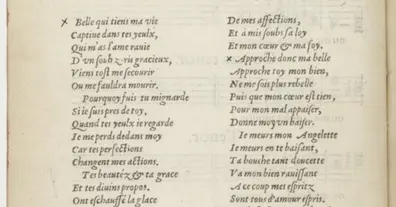 × Belle qui tiens ma vie
Captiue dans tes yeulx,
Qui m'as l'ame rauie
D'vn soubz-riz gracieux,
Viens tost me secourir
Ou me fauldra mourir.
Pourquoy fuis tu mignarde
Si ie suis pres de toy,
Quand tes yeulx ie regarde
Ie me perds dedans moy
Car tes perfections
Changent mes actions.
Tes beautéz & ta grace
Et tes diuins propos.
Ont eschauffé la glace
De mes affections,
Et à mis soubs sa loy
Et mon cœur & ma foy.
× Approche donc ma belle
Approche toy mon bien,
Ne me sois plus rebelle
Puis que mon cœur est tien,
Pour mon mal appaiser,
Donne moy vn baiser.
Ie meurs mon Angelette
Ie meurs en te baisant,
Ta bouche tant doucette
Va mon bien rauissant
A ce coup mes espritz
Sont tous d'amour espris.